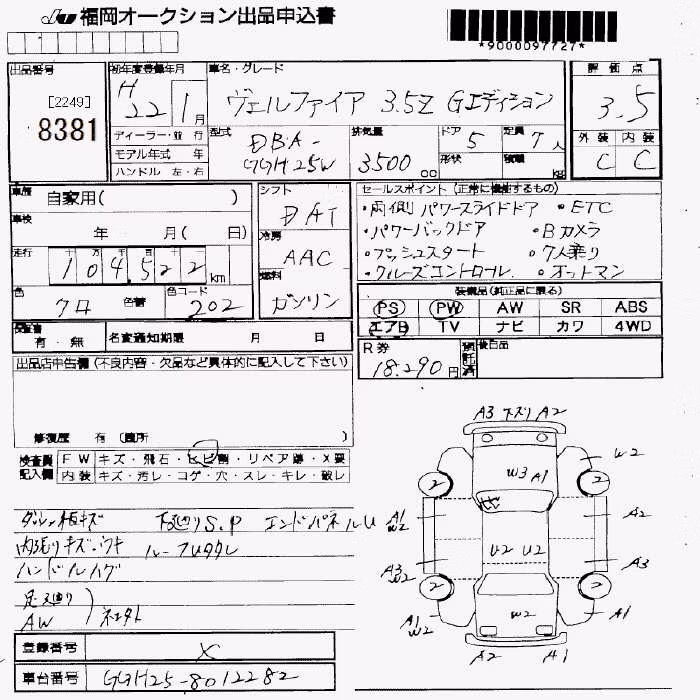 JU 福岡オークション出品申込書
*9000097727*
出品番号
[2249]
8381
初年度登録年月
H 22 1月
ディーラー・並 行
モデル年式 年
ハンドル 左・右
車名・グレード
ヴェルファイア 3.5Z Gエディション
型式
DBA-
GGH25W
排気量
3500 cc
ドア 5
形状
定員 7人
積載 kg
評価点
3.5
外装 内装
C C
車歴 自家用( )
車検 年 月( 日)
走行 104,522 km
色 クロ 色替
色コード 202
シフト
DAT
冷房
AAC
燃料
ガソリン
セールスポイント (正常に機能するもの)
・両側パワースライドドア ・ETC
・パワーバックドア ・Bカメラ
・プッシュスタート ・7人乗り
・クルーズコントロール ・オットマン
装備品(純正品に限る)
PS PW AW SR ABS
エアB TV ナビ カワ 4WD
有・無 名変通知期限 月 日
R券
18,290円
預託済
後日品
出品店申告欄 (不良内容・欠品など具体的に記入して下さい)
修復歴 有 (箇所 )
検査員記入欄
FW キズ・飛石・ヒビ割・リペア跡・X要
内装 キズ・汚レ・コゲ・穴・スレ・キレ・破レ
ダッシュ板キズ 下廻りS,P エンドパネルU
内張りキズ、ウキ ルーフUタタレ
ハンドルハゲ
足廻り
AW
登録番号 X
車台番号 GGH25-8012282
A3 スズリ A2
W3 A1
W2
2 2
A1 W2
A2
U2 U2
A3 W2
A3
2 2
W2
A1 W2
A1
A2 A1